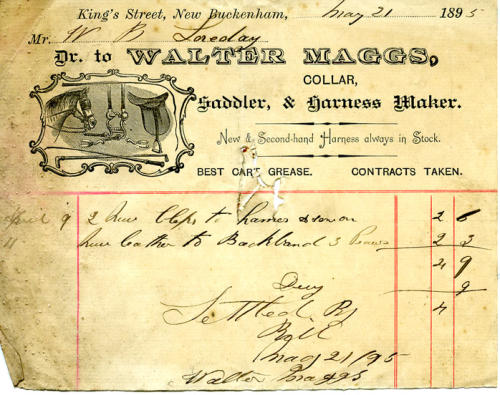 King's Street, New Buckenham, May 21 1895
Mr. W B Loveday
Dr. to WALTER MAGGS,
COLLAR,
Saddler, & Harness Maker.
New & Second-hand Harness always in Stock.
BEST CART GREASE. CONTRACTS TAKEN.
April 9 2 New Clips to hames & sewon 2 6
11 New Leather to Backband 3 2 3
4 9
9
4
Settled By
May 21/95
Walter Maggs